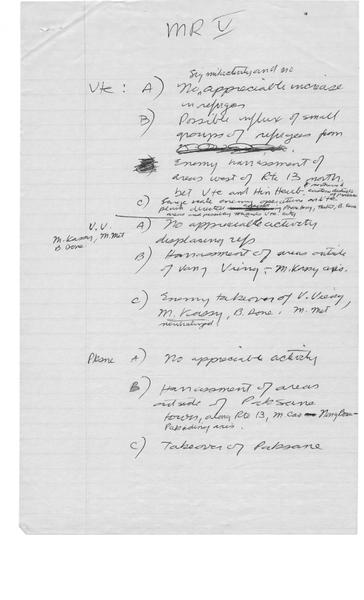 MR V
Sig mil activity and no
Vte : A) No appreciable increase
in refugees
B) Possible influx of small
groups of refugees from
Enemy harrassment of
areas west of Rte 13 north,
bet Vte and Hin Heub.
C) Large scale enemy operations
directed
areas and possibly towards Vte city
V.V. A) No appreciable activity
M. Kassy, M. Met
B. Done
displacing refs
B) Harrassment of areas outside
of Vang Vieng – M. Kassy axis.
C) Enemy takeover of V. Vieng,
M. Kassy, B. Done. M. Met
neutralized
Pksne A) No appreciable activity
B) Harrassment of areas
outside of Paksane
town, along Rte 13, M Cao
Paksading axis.
C) Takeover of Paksane